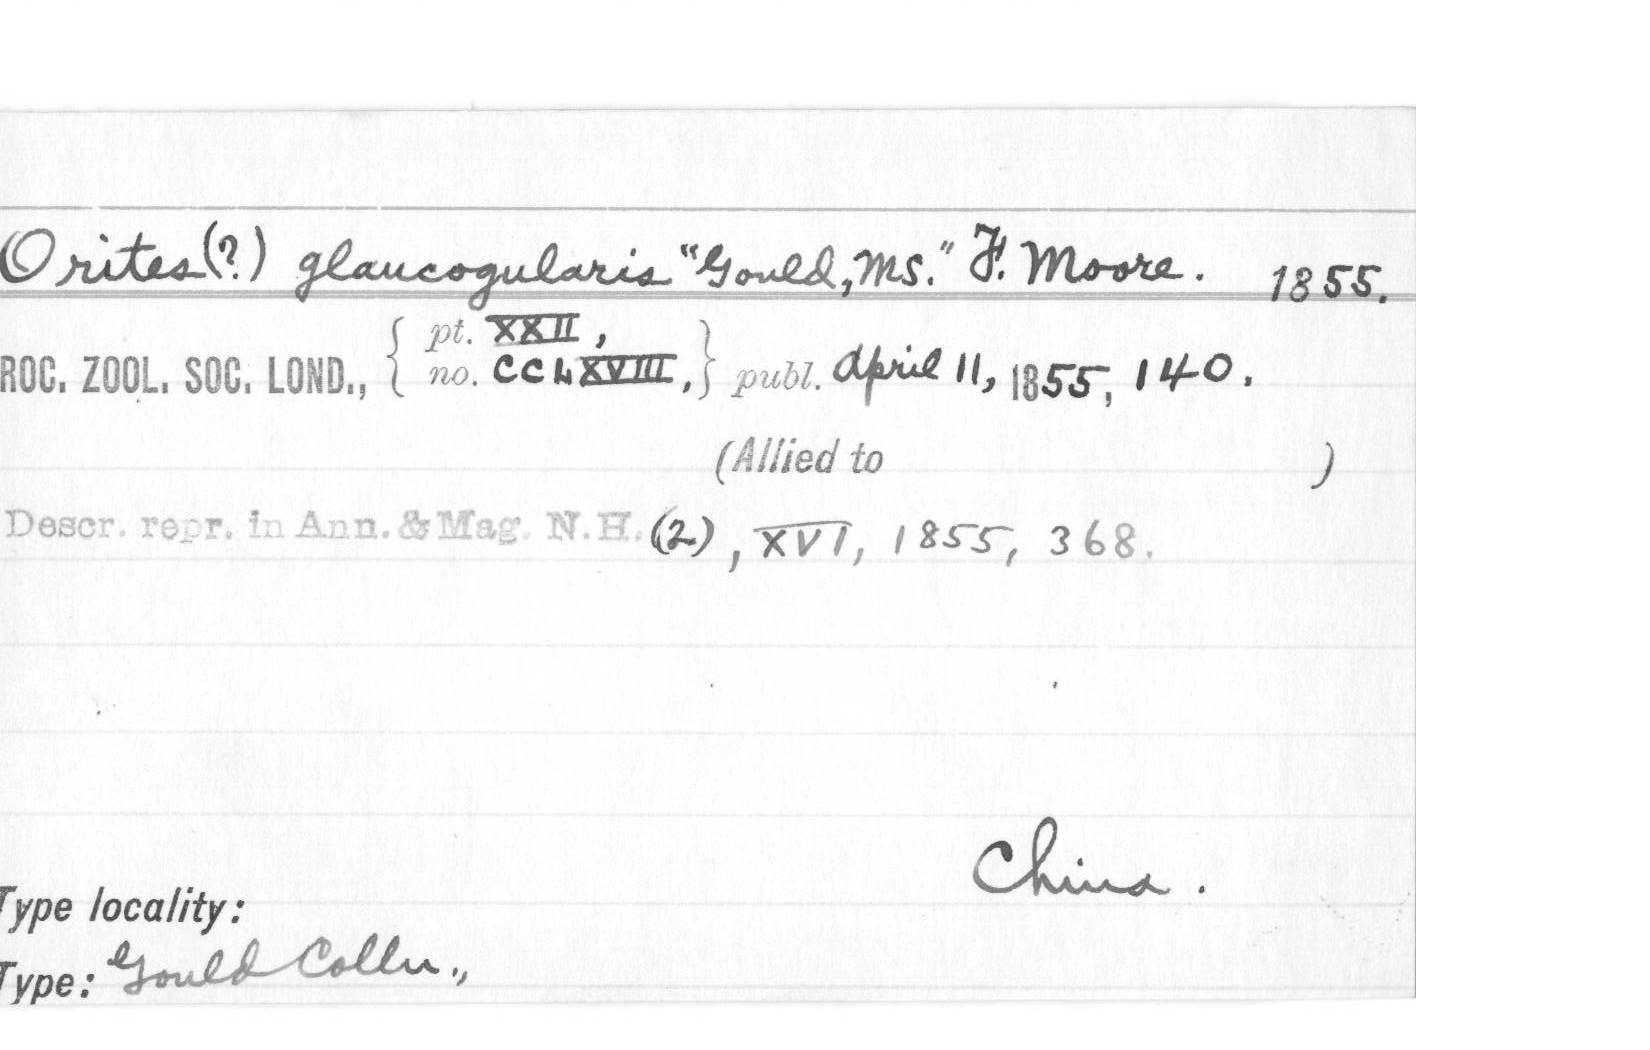 Orites(?) glaucogularis "Gould, MS." F. Moore. 1855.
pt. XXII,
ROC. ZOOL. SOC. LOND., { no. CCLXVIII, } publ. April 11, 1855, 140.
(Allied to )
Descr. repr. in Ann. & Mag. N.H. (2), XVI, 1855, 368.
China.
Type locality:
Type: Gould Colln.,